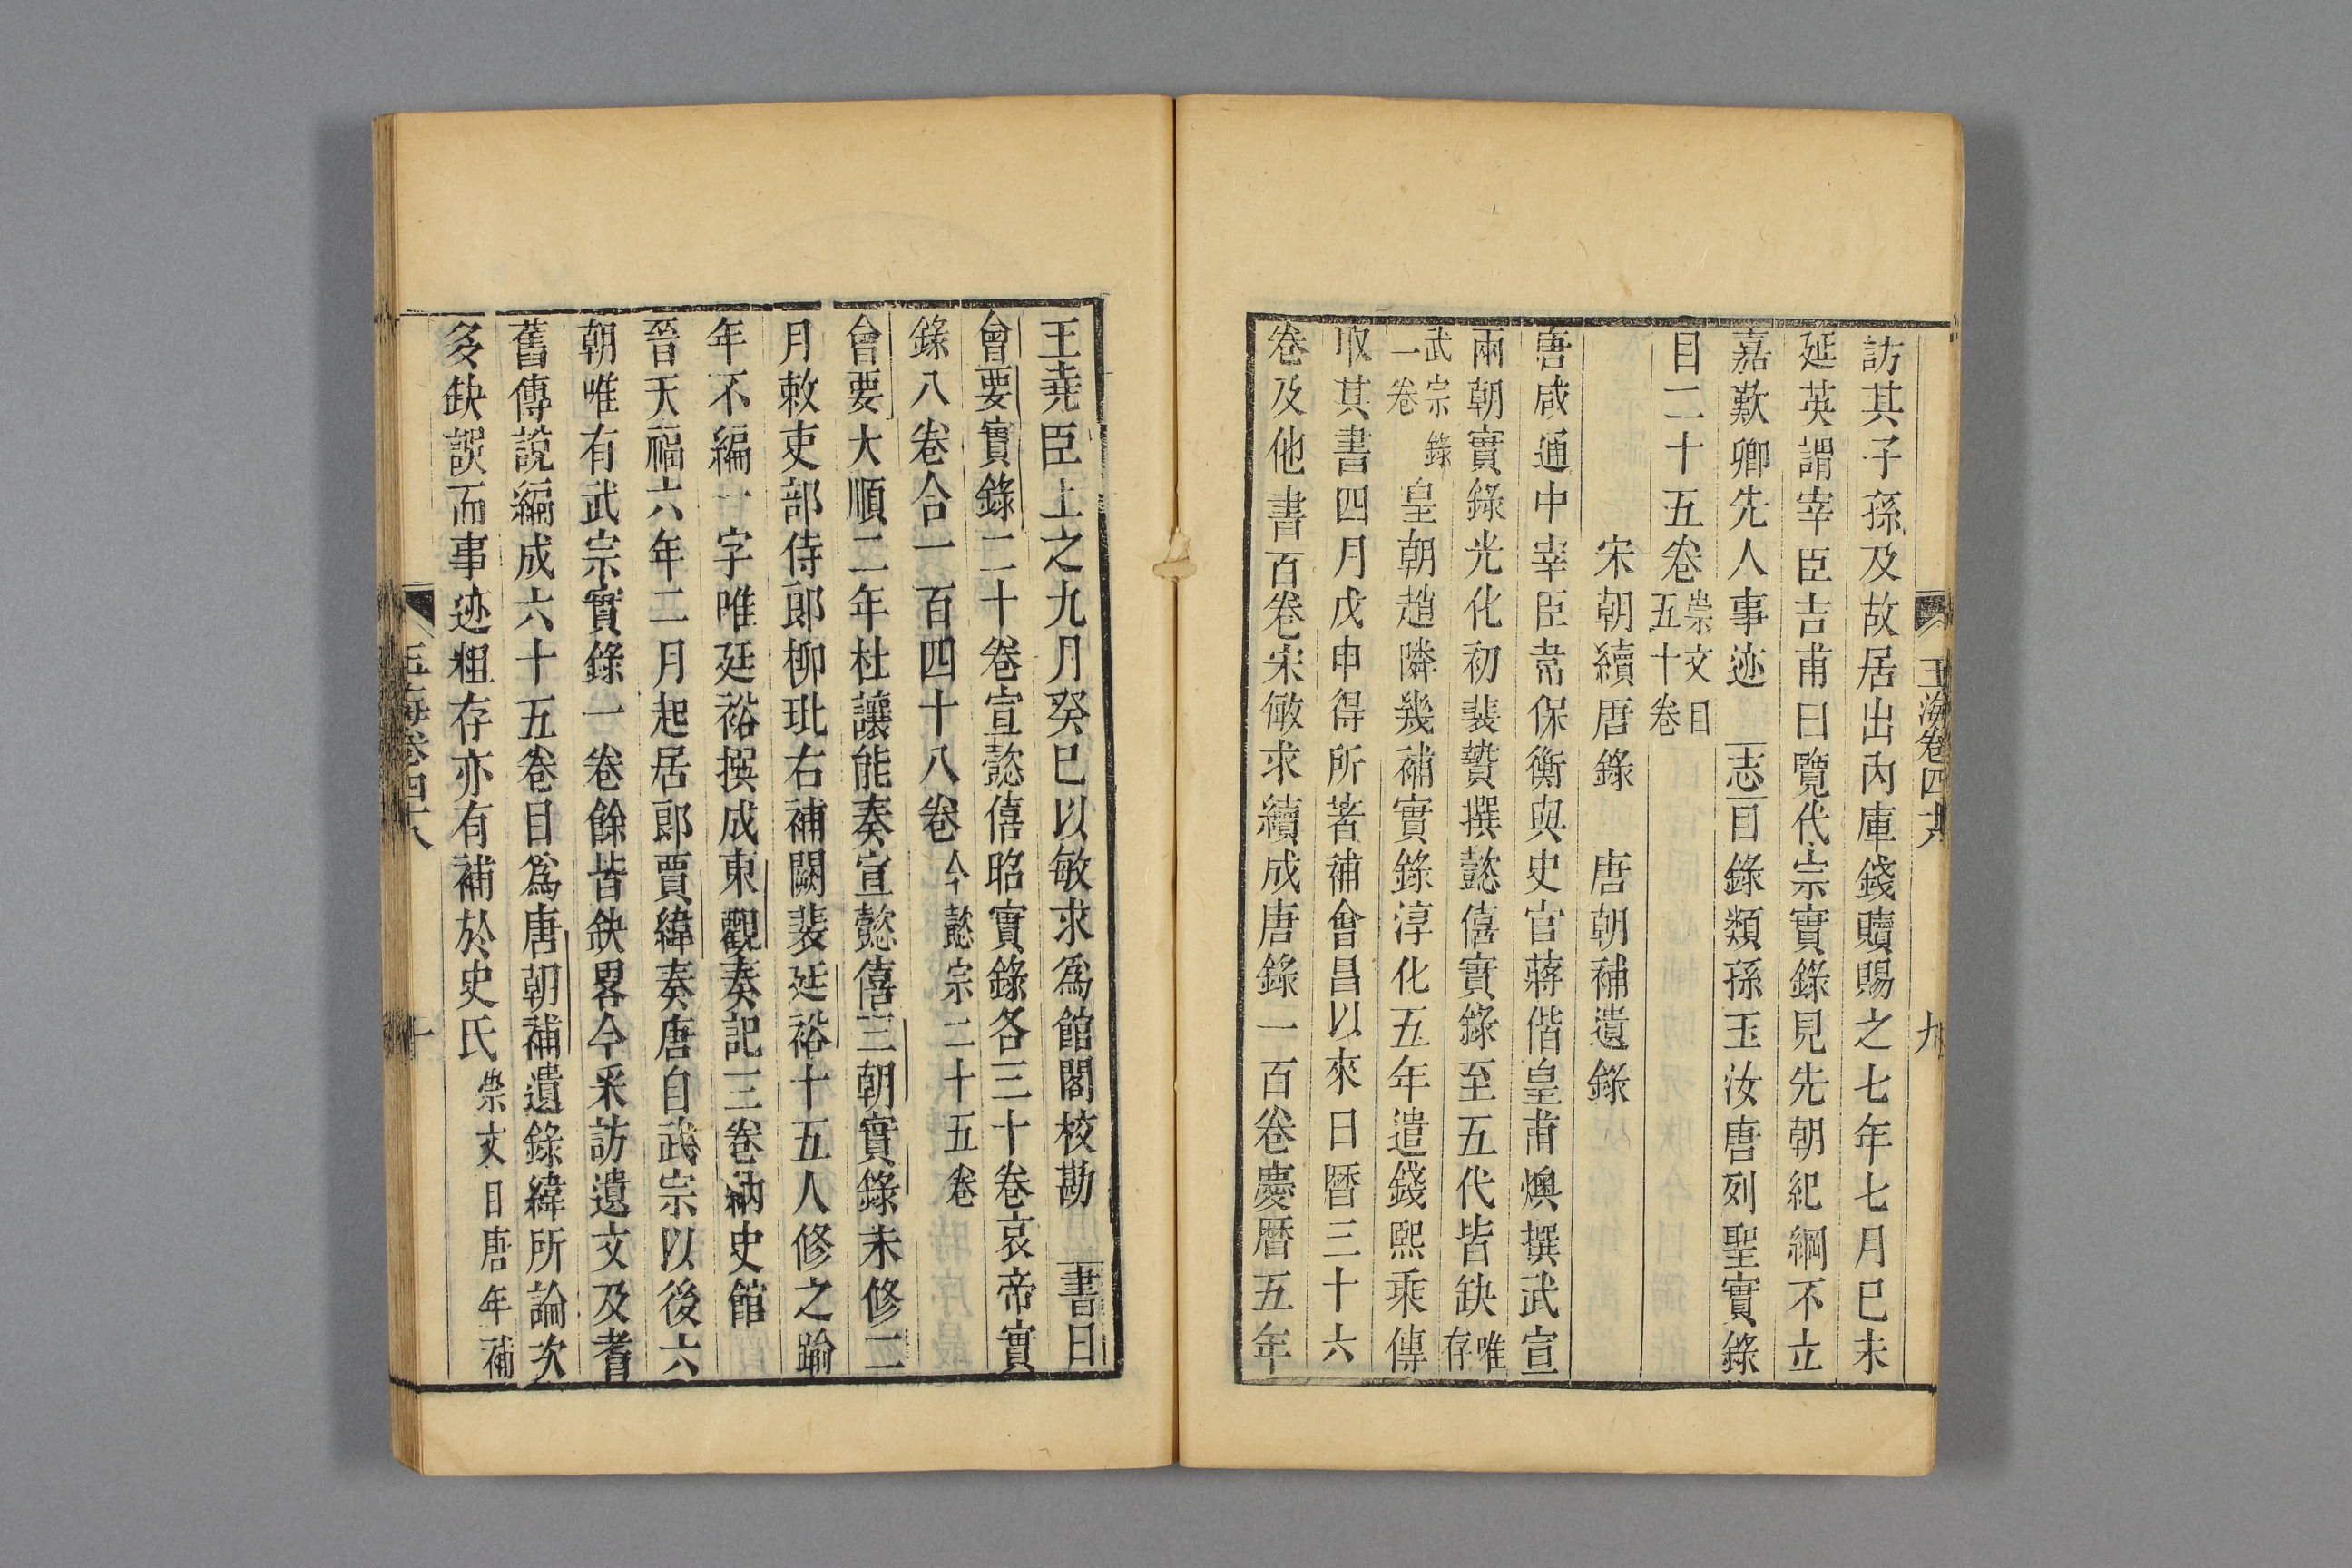 訪其子孫及故居出內庫錢贖賜之七年七月巳未
延英謂宰臣吉甫曰覽代宗實錄見先朝紀綱不立
嘉歎卿先人事迹志目錄類孫玉汝唐列聖實錄
目二十五卷崇文目五十卷
宋朝續唐錄 唐朝補遺錄
唐咸通中宰臣韋保衡與史官蔣偕皇甫燠撰武宣
兩朝實錄光化初裴贄撰懿僖實錄至五代皆缺唯存
武宗錄一卷皇朝趙隣幾補實錄淳化五年遣錢熙乘傳
取其書四月戊申得所著補會昌以來日曆三十六
卷及他書百卷宋敏求續成唐錄一百卷慶曆五年
玉海卷四十八 九
王堯臣上之九月癸巳以敏求爲館閣校勘 書目
會要實錄二十卷宣懿僖昭實錄各三十卷哀帝實
錄八卷合一百四十八卷今懿宗二十五卷
會要大順二年杜讓能奏宣懿僖三朝實錄未修二
月敕吏部侍郎柳玭右補闕裴廷裕十五人修之踰
年不編一字唯廷裕撰成東觀奏記三卷納史館
晉天福六年二月起居郎賈緯奏唐自武宗以後六
朝唯有武宗實錄一卷餘皆缺畧今采訪遺文及耆
舊傳說編成六十五卷目爲唐朝補遺錄緯所論次
多缺誤而事迹粗存亦有補於史氏崇文目唐年補
玉海卷四十八 十